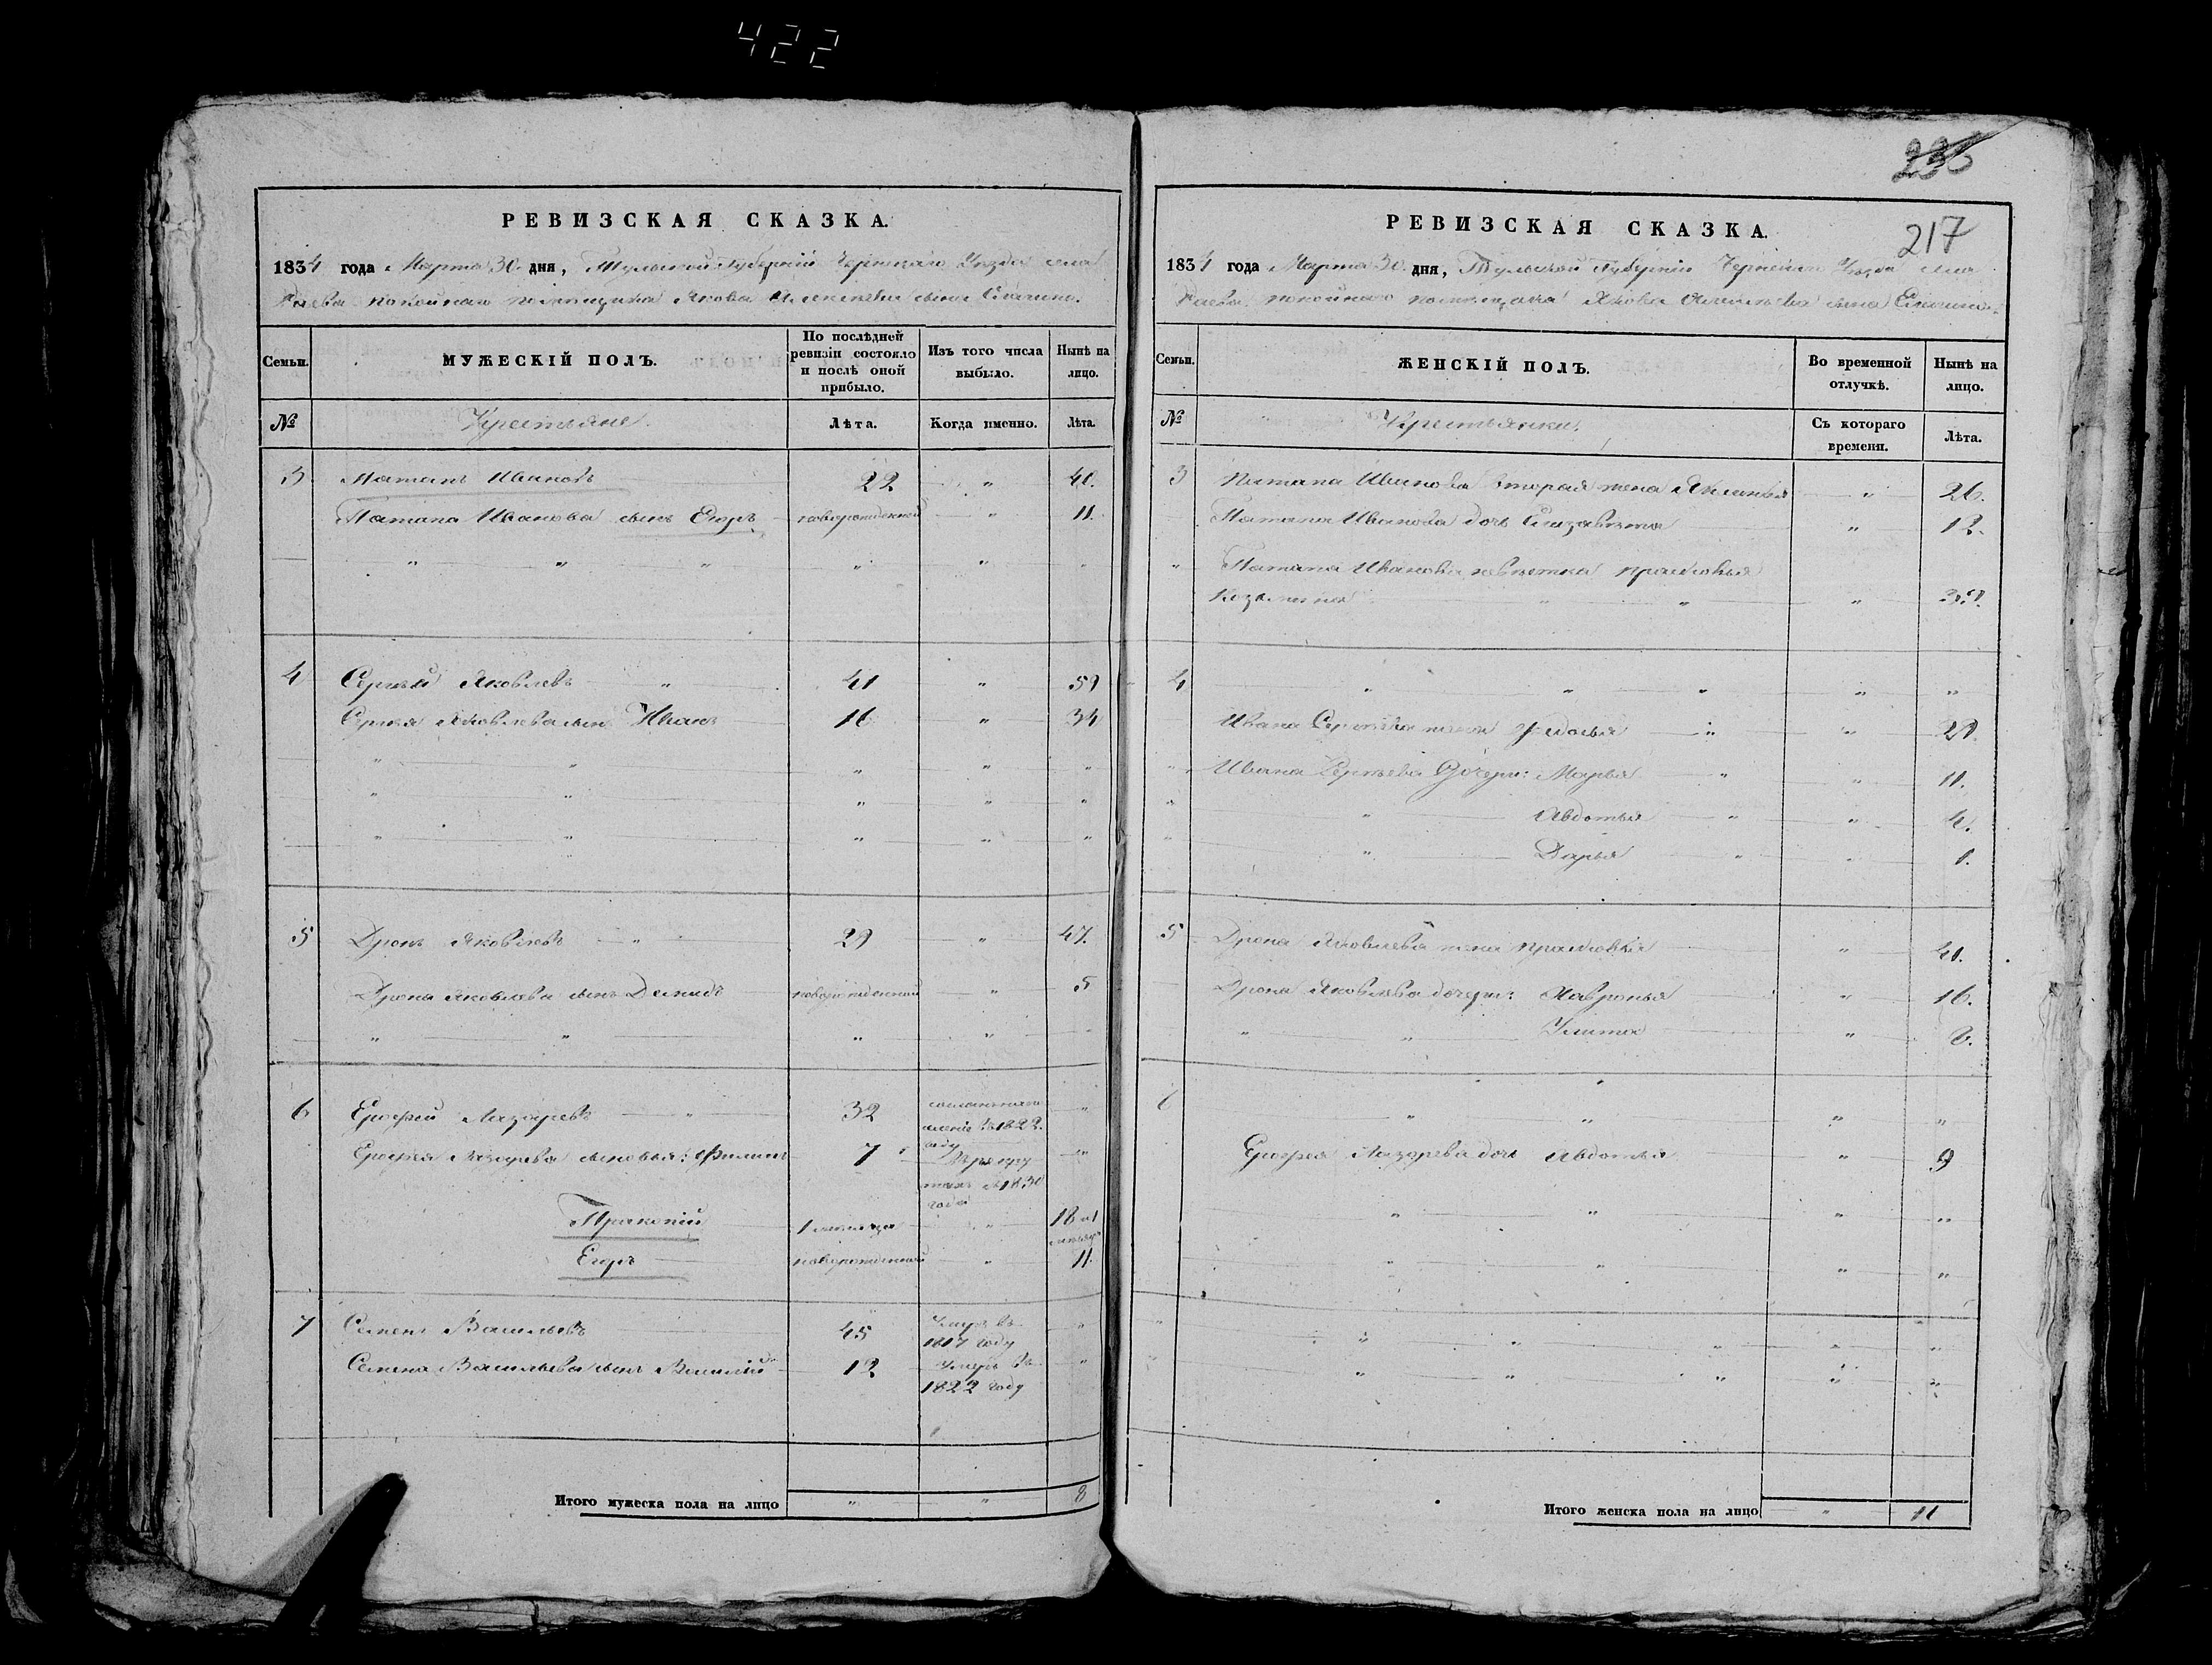 422
235
РЕВИЗСКАЯ СКАЗКА.
1834 года Марта 30 дня, Тульской Губернии Чернскаго Уезда села
покойнаго помещика Якова сына
Семьи. МУЖЕСКІЙ ПОЛЪ. По послѣдней ревизіи состояло и послѣ оной прибыло. Изъ того числа выбыло. Нынѣ на лицо.
№ Крестьяне. Лѣта. Когда именно. Лѣта.
3 Потапъ Ивановъ 22 " 40.
Потапа Иванова сынъ Егоръ новорожденной " 11.
" " " " " "
4 Сергѣй Яковлевъ " 41 " 59
Сергѣя Яковлева сынъ Иванъ 16 " 34
" " " " "
" " " " "
" " " " "
5 Дронъ Яковлевъ " 29 " 47.
Дрона Яковлева сынъ Демидъ новорожденной " 5
" " " "
6 Ерофей Лазоревъ " 32 1822 году "
Ерофея Лазорева сыновья: Филипъ 7 в рекруты 1830 года "
Пракопій 1 месяца " 18 и 1 месяцъ
Егоръ новорожденной " 11.
7 Семенъ Васильевъ 45 умеръ въ 1817 году "
Семена Васильева сынъ Василий 12 умеръ въ 1822 году "
Итого мужеска пола на лицо " " 8
РЕВИЗСКАЯ СКАЗКА.
217
1834 года Марта 30 дня, Тульской Губернии Чернскаго Уезда села
покойнаго помещика Якова сына
Семьи. ЖЕНСКІЙ ПОЛЪ. Во временной отлучкѣ. Нынѣ на лицо.
№ Крестьянки. Съ котораго времени. Лѣта.
3 Потапа Иванова вторая жена " 26.
Потапа Иванова дочь Елизавета " 12.
" Потапа Иванова невестка прасковья
" " "
4 " " " " "
Ивана Сергѣева жена Федосья " " 29.
" Ивана Сергѣева дочери: Марья " " 11.
" " Авдотья " " 4.
" " Дарья " " 1.
5 Дрона Яковлева жена прасковья " 41.
Дрона Яковлева дочери: Хавронья " 16.
" " Улита " 8.
6 " " " "
Ерофея Лазорева дочь Авдотья " 9
" " " "
" " " "
" " " " " "
" " " " " "
Итого женска пола на лицо " 11